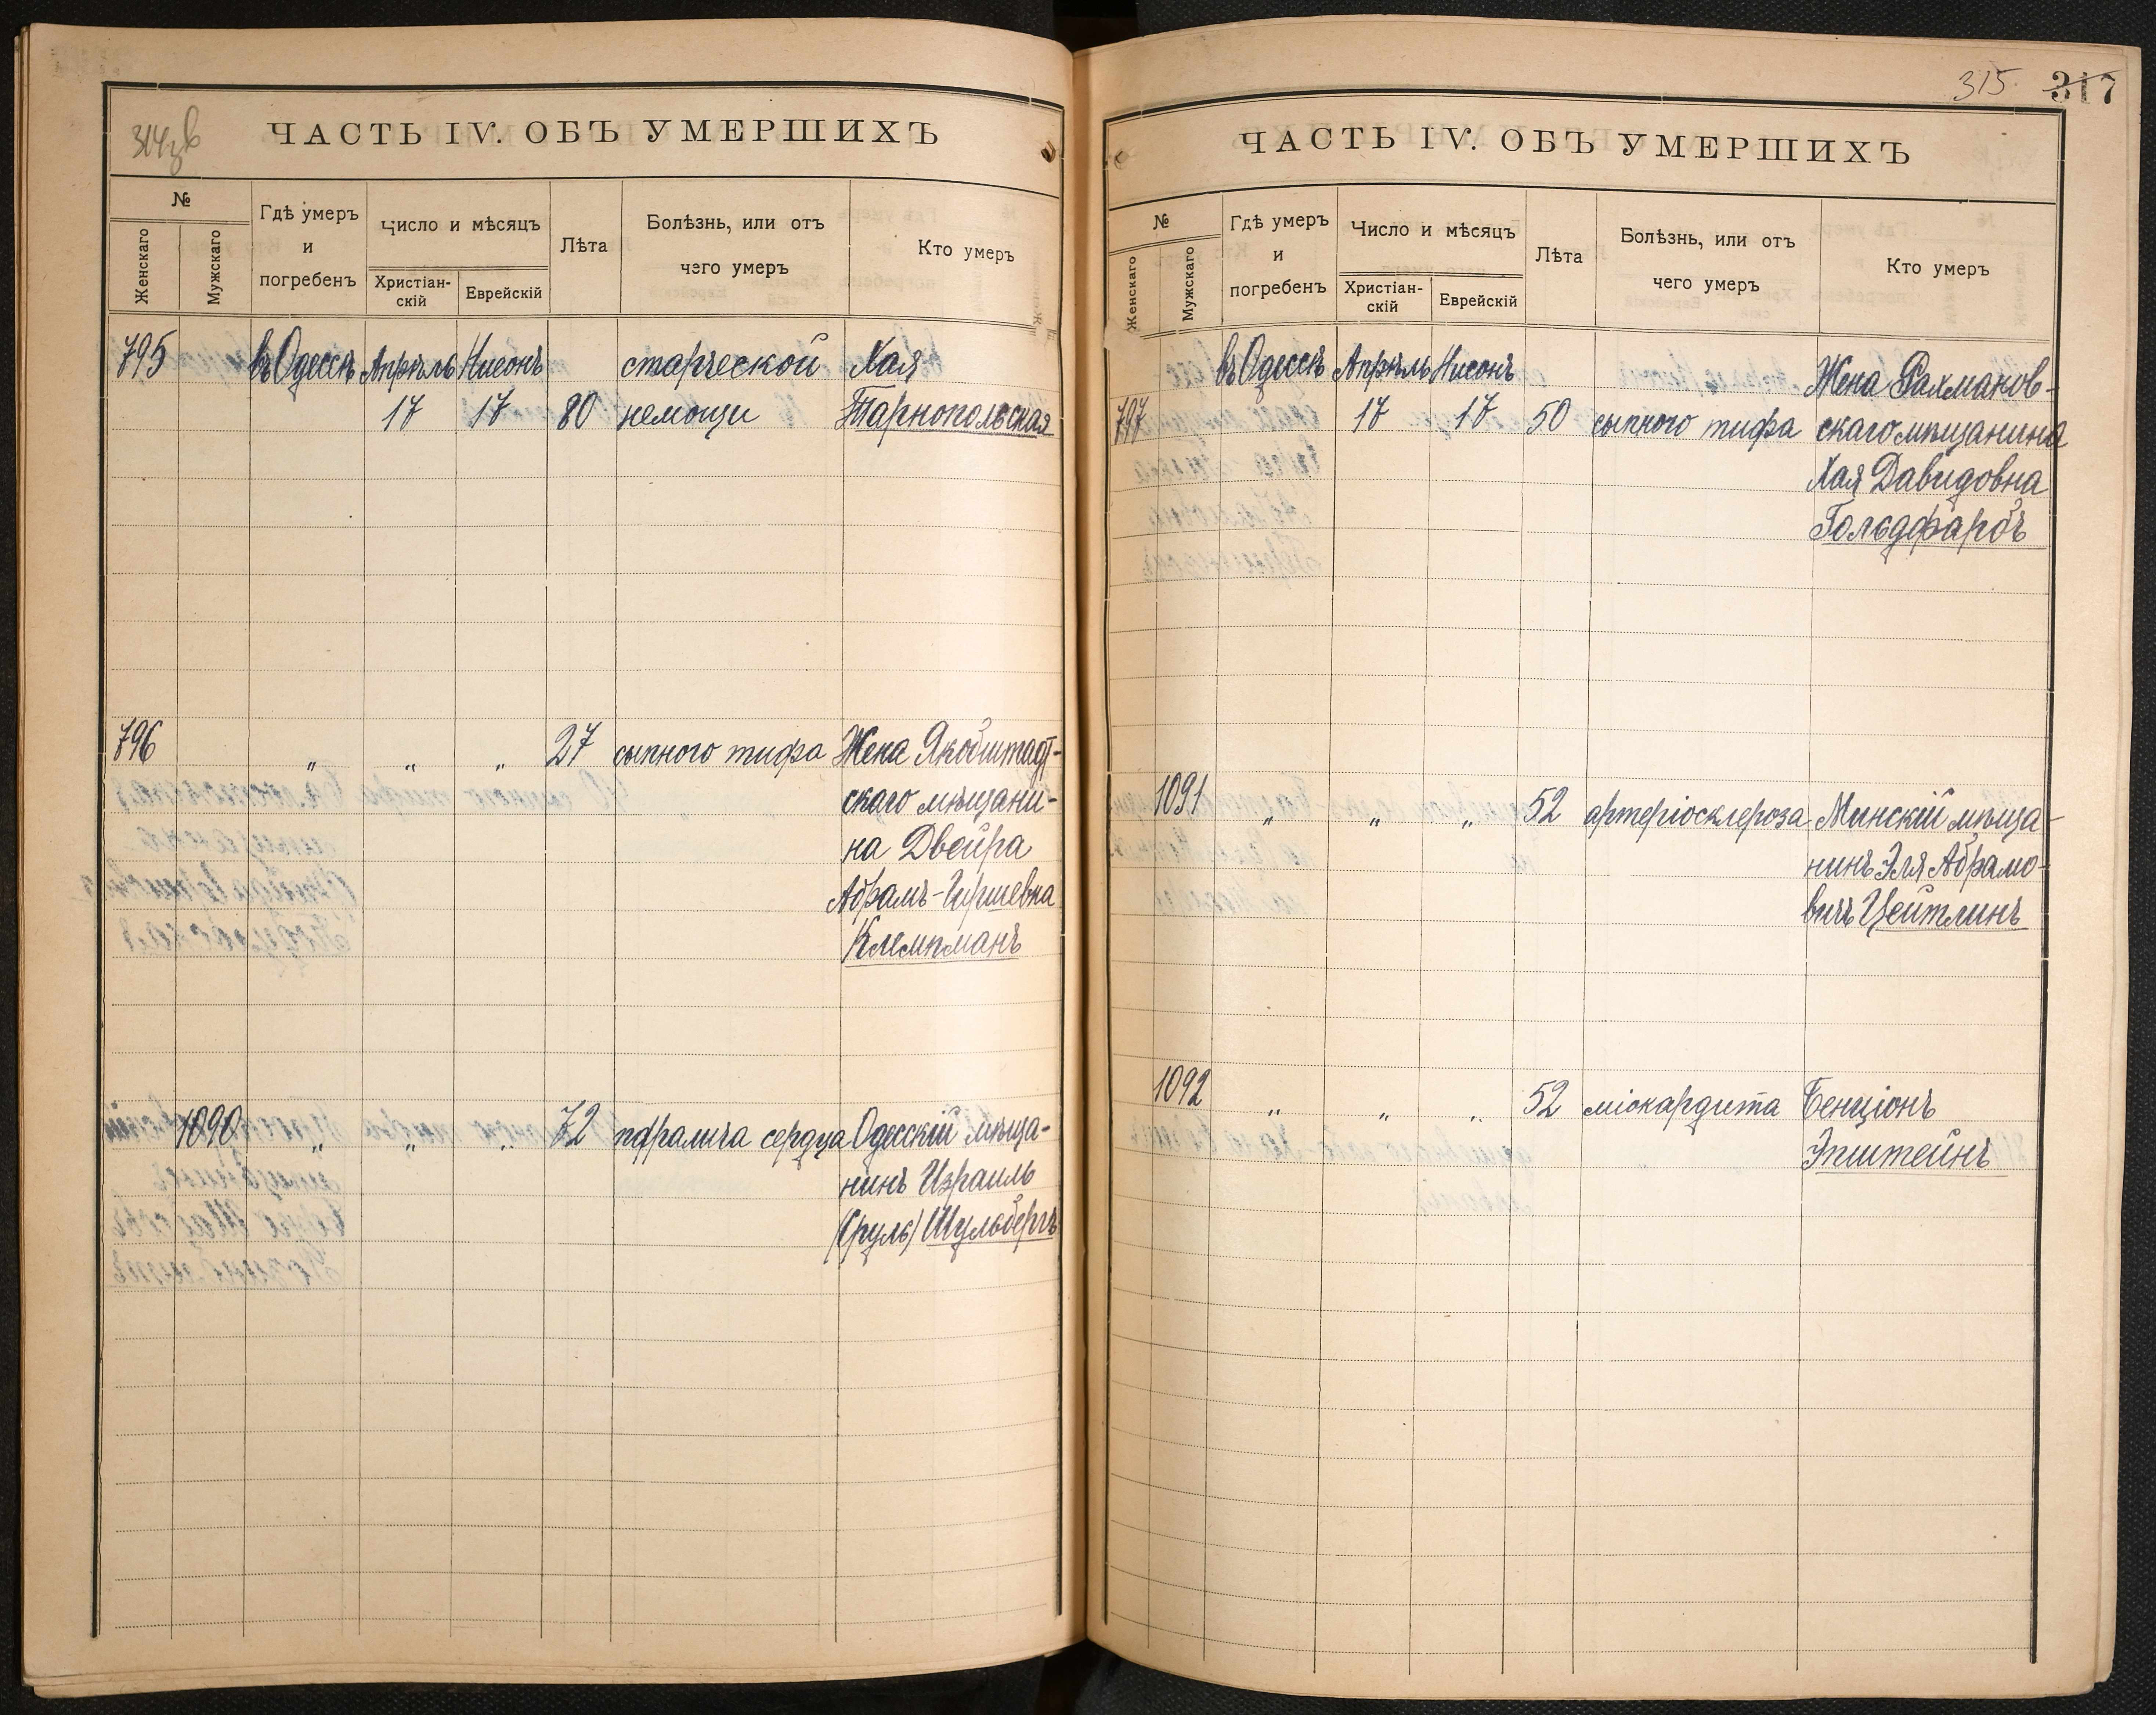 314 зв
ЧАСТЬ IV. ОБЪ УМЕРШИХЪ
№
Женскаго
Мужскаго
Гдѣ умеръ
и
погребенъ
Число и мѣсяцъ
Христіан-
скій
Еврейскій
Лѣта
Болѣзнь, или отъ
чего умеръ
Кто умеръ
795 въ Одессѣ Апрѣль Нисонъ старческой Хая
17 17 80 немощи Тарнопольская
796 „ „ „ 27 сыпного тифа Жена Якобштадт-
скаго мѣщани-
на Двейра
Абрамъ-Гиршевна
Клемпманъ
1090 „ „ „ 72 паралича сердца Одесскій мѣща-
нинъ Израиль
(Сруль) Шульбергъ
315. 317
ЧАСТЬ IV. ОБЪ УМЕРШИХЪ
№
Женскаго
Мужскаго
Гдѣ умеръ
и
погребенъ
Число и мѣсяцъ
Христіан-
скій
Еврейскій
Лѣта
Болѣзнь, или отъ
чего умеръ
Кто умеръ
въ Одессѣ Апрѣль Нисонъ Жена Рахманов-
797 17 17 50 сыпного тифа скаго мѣщанина
Хая Давидовна
Гольдфарбъ
1091 „ „ „ 52 артеріосклероза Минскій мѣща-
нинъ Эля Абрамо-
вичъ Цейтлинъ
1092 „ „ „ 52 міокардита Бенціонъ
Эпштейнъ